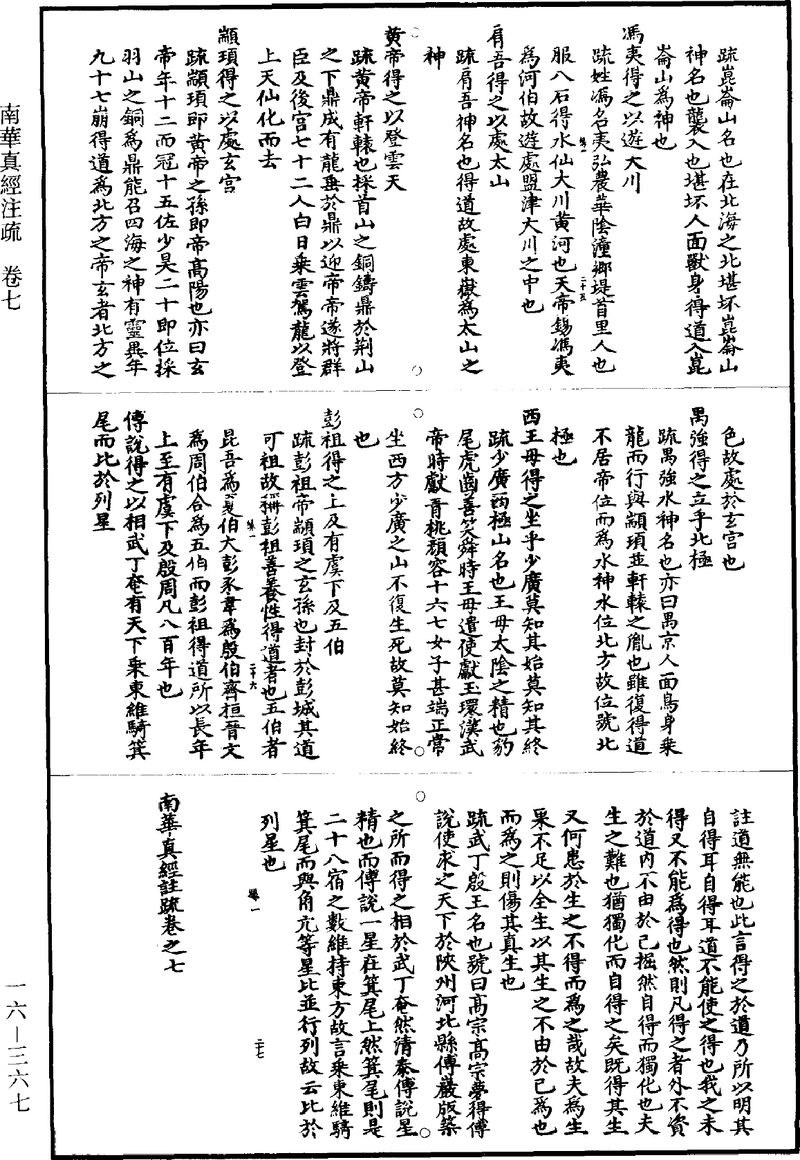 疏崑崙山名也在北海之北堪坏崑崙山
神名也襲入也堪坏人面獸身得道入崑
崙山為神也
馮夷得之以遊大川
疏姓馮名夷弘農華陰潼鄉堤首里人也
服八石得水仙大川黃河也天帝錫馮夷
為河伯故遊處盟津大川之中也
肩吾得之以處太山
疏肩吾神名也得道故處東嶽為太山之
神
黃帝得之以登雲天
疏黃帝軒轅也採首山之銅鑄鼎於荆山
之下鼎成有龍垂於鼎以迎帝帝遂將群
臣及後宮七十二人白日乘雲駕龍以登
上天仙化而去
顓頊得之以處玄宮
疏顓頊即黃帝之孫即帝高陽也亦曰玄
帝年十二而冠十五佐少昊二十即位採
羽山之銅為鼎能召四海之神有靈異年
九十七崩得道為北方之帝玄者北方之
色故處於玄宮也
禺強得之立乎北極
疏禺強水神名也亦曰禺京人面鳥身乘
龍而行與顓頊並軒轅之胤也雖復得道
不居帝位而為水神水位北方故位號北
極也
西王母得之坐乎少廣莫知其始莫知其終
疏少廣西極山名也王母太陰之精也豹
尾虎齒善笑舜時王母遣使獻玉環漢武
帝時獻青桃顏容十六七女子甚端正常
坐西方少廣之山不復生死故莫知始終
也
彭祖得之上及有虞下及五伯
疏彭祖帝顓頊之玄孫也封於彭城其道
可祖故稱彭祖善養性得道者也五伯者
昆吾為夏伯大彭豕韋為殷伯齊桓晉文
為周伯合為五伯而彭祖得道所以長年
上至有虞下及殷周凡八百年也
傅說得之以相武丁奄有天下乘東維騎箕
尾而比於列星
註道無能也此言得之於道乃所以明其
自得耳自得耳道不能使之得也我之未
得又不能為得也然則凡得之者外不資
於道內不由於己掘然自得而獨化也夫
生之難也猶獨化而自得之矣既得其生
又何患於生之不得而為之哉故夫為生
果不足以全生以其生之不由於己為也
而為之則傷其真生也
疏武丁殷王名也號曰高宗高宗夢得傅
說使求之天下於陝州河北縣傅巖版築
之所而得之相於武丁奄然清泰傅說星
精也而傅說一星在箕尾上然箕尾則是
二十八宿之數維持東方故言乘東維騎
箕尾而與角亢等星比並行列故云比於
列星也
南華真經註疏卷之七
南華真經注疏 卷七
一六—三六七